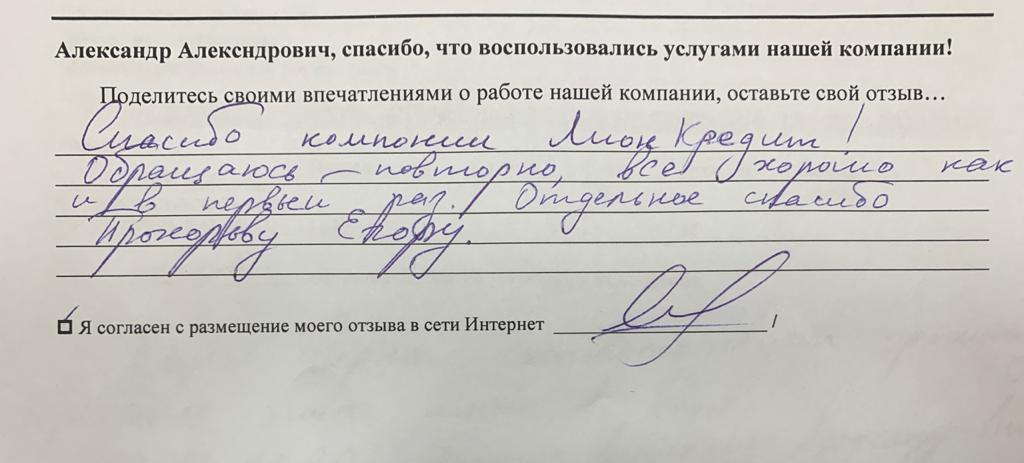 Александр Алексндрович, спасибо, что воспользовались услугами нашей компании!
Поделитесь своими впечатлениями о работе нашей компании, оставьте свой отзыв…
Спасибо компании Лион Кредит!
Обращаюсь повторно, все хорошо как
и в первый раз. Отдельное спасибо
Прохорову Егору.
Я согласен с размещение моего отзыва в сети Интернет /